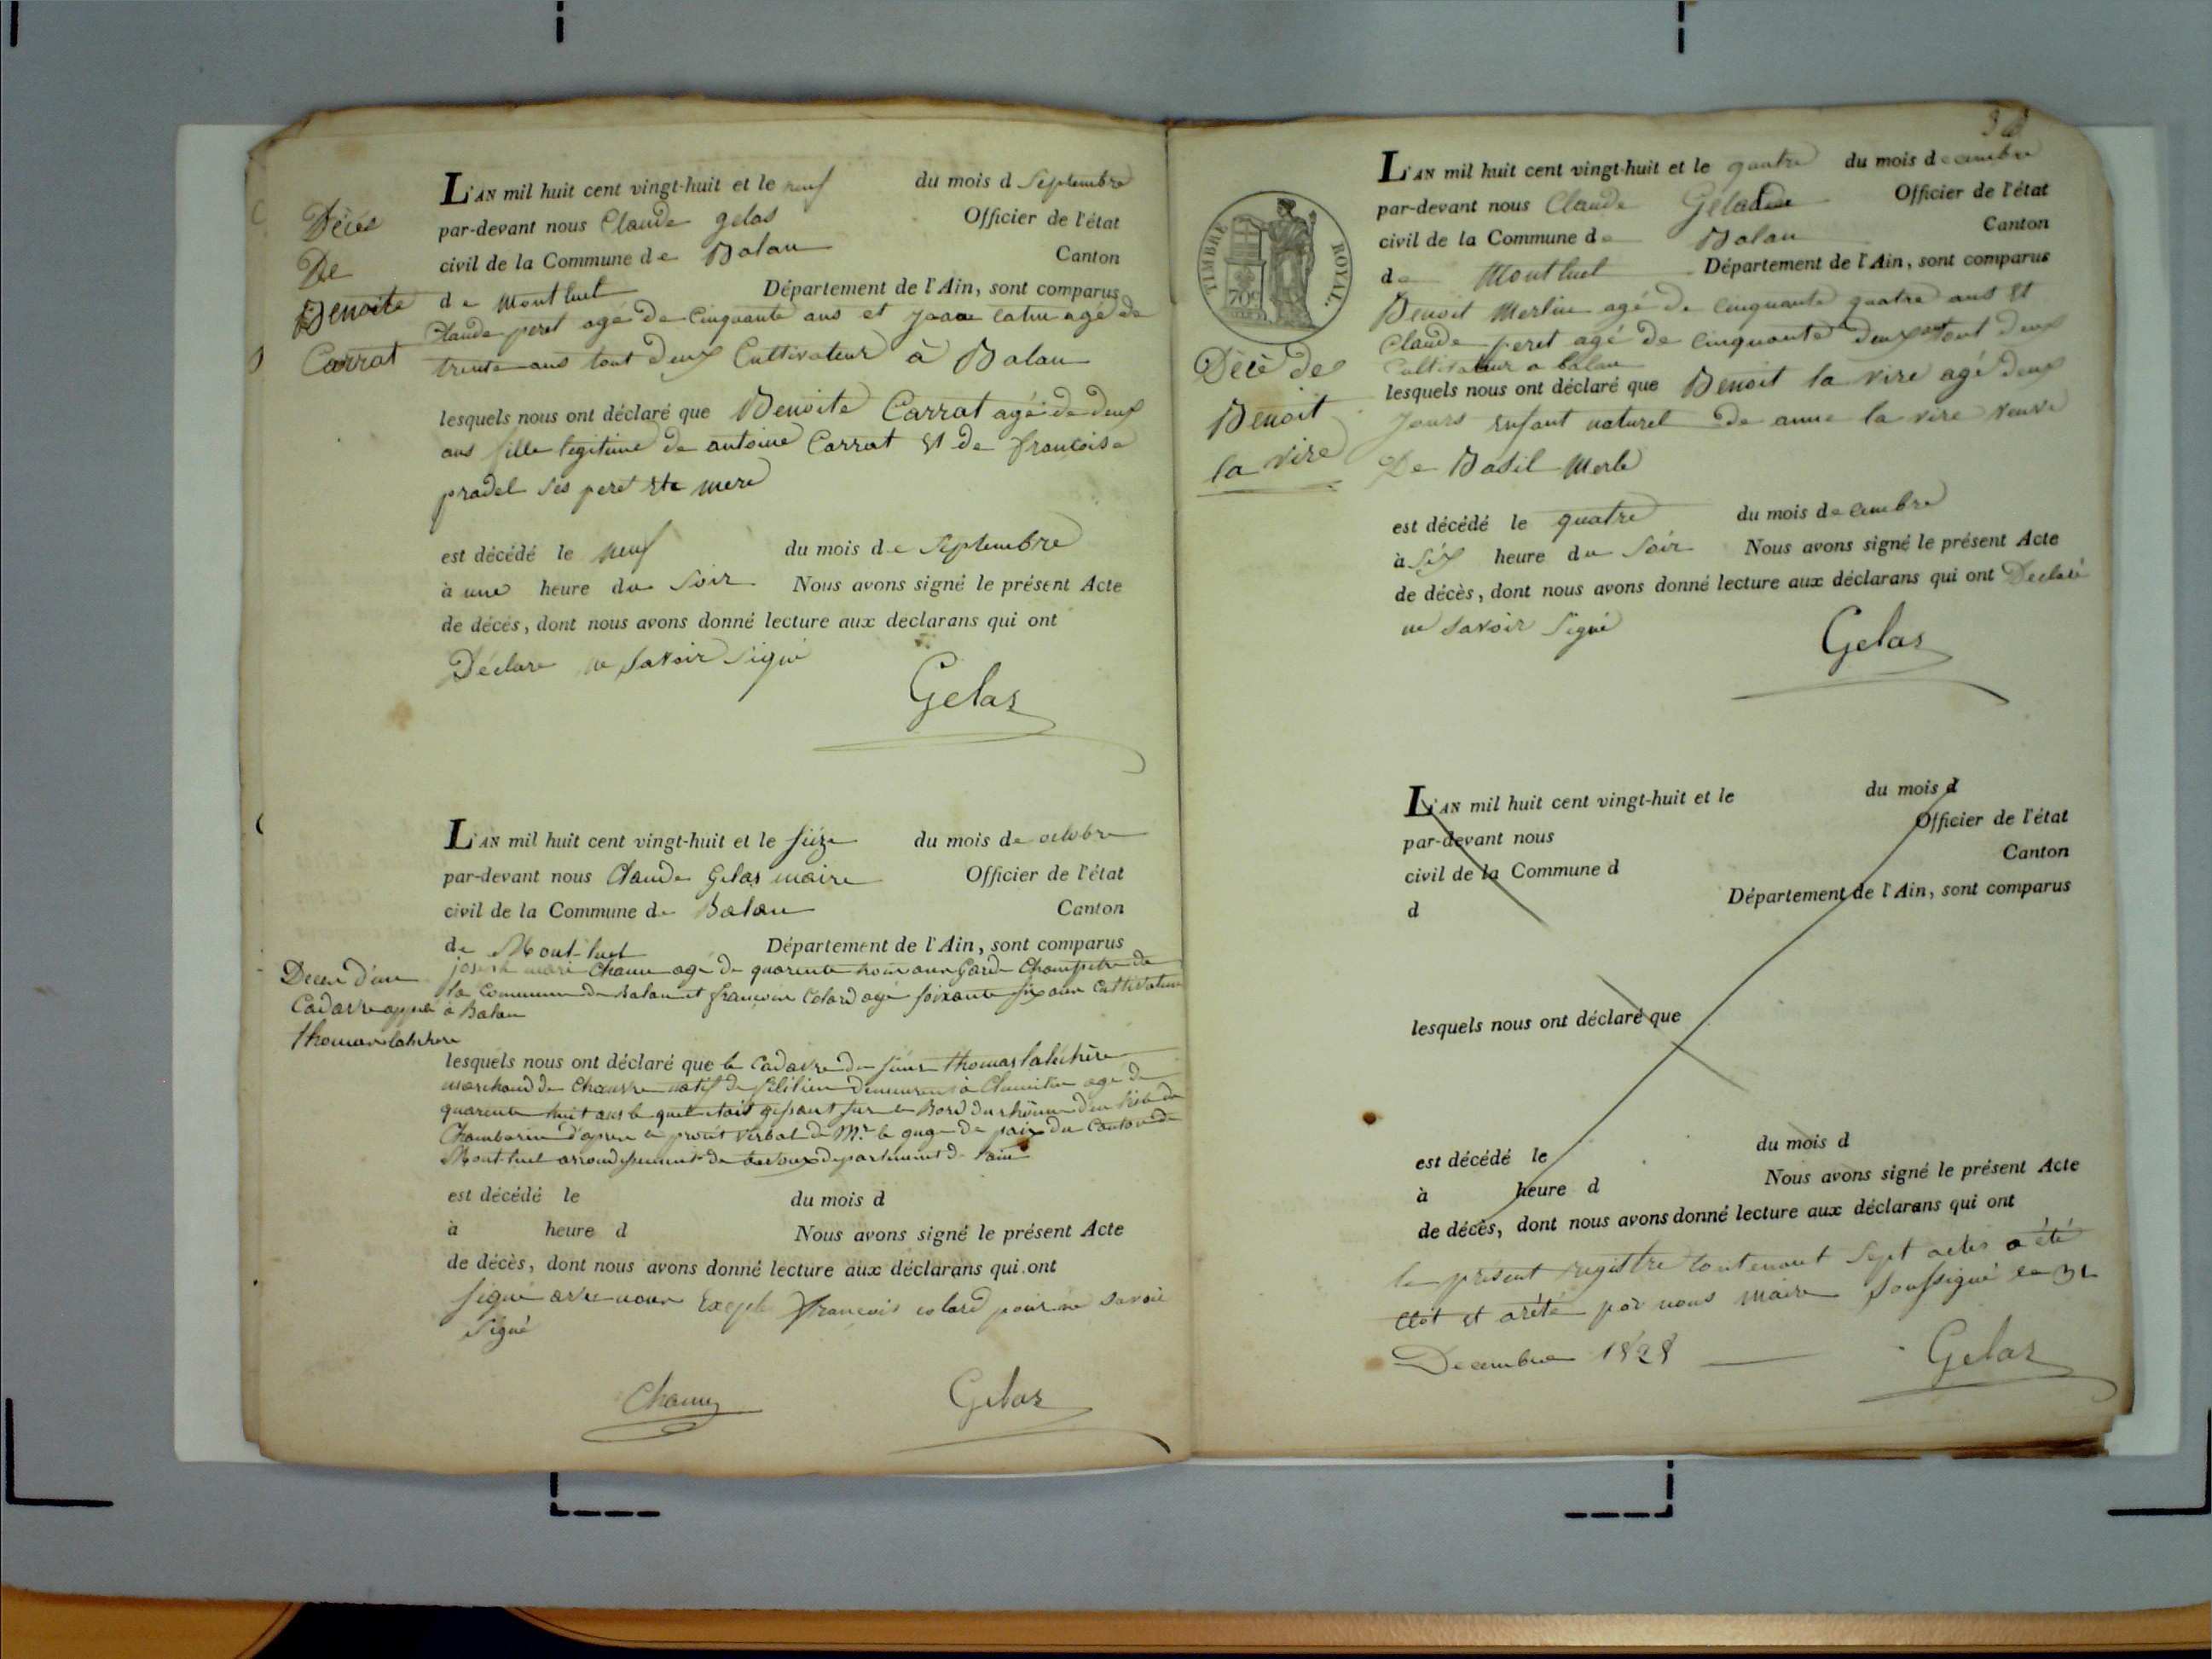 Décès
De
Benoite
Carrat
L'AN mil huit cent vingt-huit et le neuf du mois d Septembre
par-devant nous Claude gelas Officier de l'état
civil de la Commune de Balan Canton
de Montluel Département de l'Ain, sont comparus
Claude peret agé de Cinquante ans et agé de
trente ans tout deux Cultivateur à Balan
lesquels nous ont déclaré que Benoite Carrat agéé de deux
ans fille légitime de antoine Carrat et de francoise
pradel ses peret et mere
est décédé le neuf du mois de Septembre
à une heure du Soir Nous avons signé le présent Acte
de décès, dont nous avons donné lecture aux declarans qui ont
Déclare ne savoir signé
Gelas
Deces d'un
Cadavre appelé
thomas
L'AN mil huit cent vingt-huit et le seize du mois de octobre
par-devant nous Claude Gelas maire Officier de l'état
civil de la Commune de Balan Canton
de Mont-luel Département de l'Ain, sont comparus
joseph marie Chanu agé de quarente trois ans Garde Champetre de
la Commune de Balan et francois Colard agé soixante six ans Cultivateur
à Balan
lesquels nous ont déclaré que le Cadavre de sieur thomas
marchand de Chanvre natif de demeurant à agé de
quarente huit ans le quel etait gissant sur le Bord du rhône
d'apres le procet verbal de Mr le guge de paix du Canton de
Mont-luel arrondissement de departement de l'ain
est décédé le du mois d
à heure d Nous avons signé le présent Acte
de décès, dont nous avons donné lecture aux déclarans qui ont
signé avec nous Exepté francois colard pour ne savoir
signé
Chanu Gelas
38
TIMBRE ROYAL.
70c
Décè de
Benoit
la vire
L'AN mil huit cent vingt-huit et le quatre du mois decembre
par-devant nous Claude Gelas Officier de l'état
civil de la Commune de Balan Canton
de Montluel Département de l'Ain, sont comparus
Benoit Merlin agé de cinquante quatre ans et
Claude peret agé de cinquante deux ans tout deux
Cultivateur a balan
lesquels nous ont déclaré que Benoit la vire agé deux
jours enfant naturel de anne la vire veuve
De Basil Merle
est décédé le quatre du mois decembre
à six heure du soir Nous avons signé le présent Acte
de décès, dont nous avons donné lecture aux déclarans qui ont Declaré
ne savoir signé
Gelas
L'AN mil huit cent vingt-huit et le du mois d
par-devant nous Officier de l'état
civil de la Commune d Canton
d Département de l'Ain, sont comparus
lesquels nous ont déclaré que
est décédé le du mois d
à heure d Nous avons signé le présent Acte
de décès, dont nous avons donné lecture aux déclarans qui ont
le présent registre contenant sept actes a été
clot et arété par nous maire soussigné le 31
Decembre 1828
Gelas